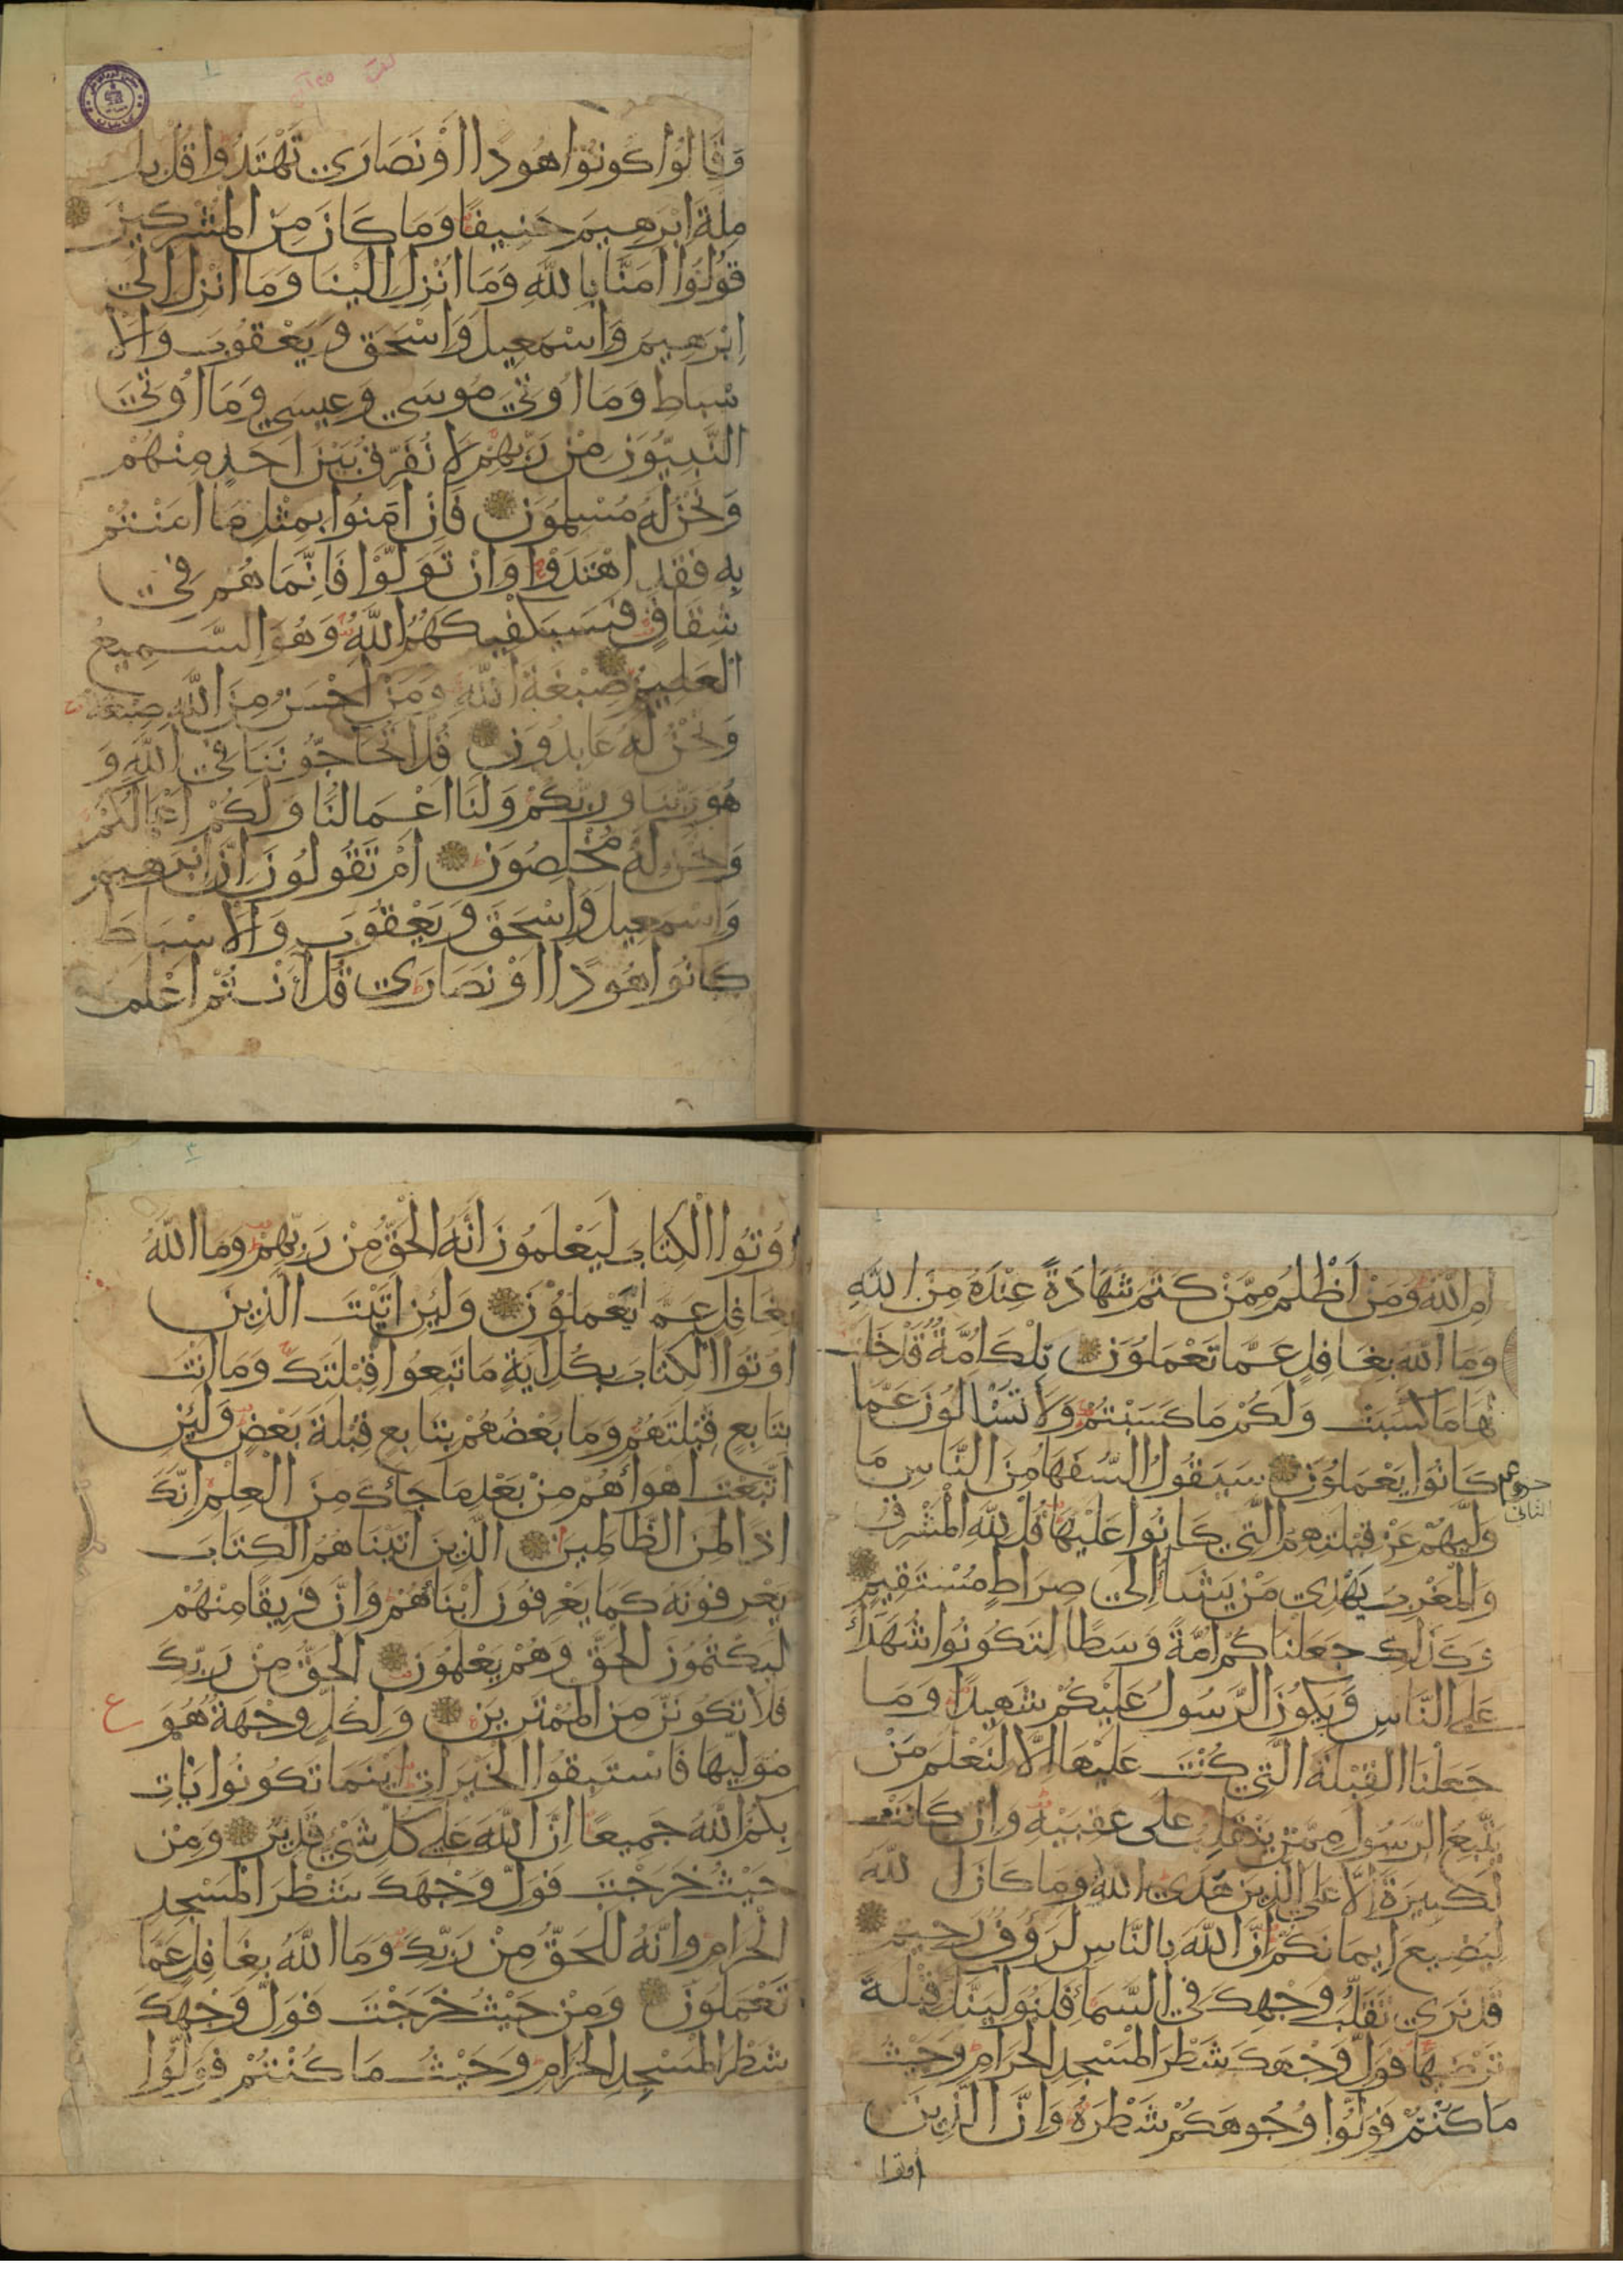 وَقَالُوا كُونُوا هُودًا اَوْ نَصَارَي تَهْتَدُوا قُلْ بل
مِلَةَ اِبْرَهِيمَ حَنِيفًا وَمَا كَانَ مِنَ المُشْرِكِينَ
قُولُوا اٰمَنَّا بِاللَّهِ وَمَا اُنْزِلَ اِلَيْنَا وَمَا اُنْزِلَ اِلَي
اِبْرَهِيمَ وَاِسْمَعِيلَ وَاِسْحَقَ وَيَعْقُوبَ وَالْاَ
سْبَاطِ وَمَا اُوتِيَ مُوسَي وَعِيسَي وَمَا اُوتِيَ
النَّبِيُّونَ مِنْ رَبِّهِمْ لَا نُفَرِّقُ بَيْنَ اَحَدٍ مِنْهُمْ
وَنَحْنُ لَهُ مُسْلِمُونَ فَاِنْ اٰمَنُوا بِمِثْلِ مَا اٰمَنْتُمْ
بِهِ فَقَدِ اهْتَدَوْا وَاِنْ تَوَلَّوْا فَاِنَّمَا هُمْ فِي
شِقَاقٍ فَسَيَكْفِيكَهُمُ اللَّهُ وَهُوَ السَّمِيعُ
الْعَلِيمُ صِبْغَةَ اللَّهِ وَمَنْ اَحْسَنُ مِنَ اللَّهِ صِبْغَةً
وَنَحْنُ لَهُ عَابِدُونَ قُلْ اَتُحَاجُّونَنَا فِي اللَّهِ وَ
هُوَ رَبُّنَا وَرَبُّكُمْ وَلَنَا اَعْمَالُنَا وَلَكُمْ اَعْمَالُكُمْ
وَنَحْنُ لَهُ مُخْلِصُونَ اَمْ تَقُولُونَ اِنَّ اِبْرَهِيمَ
وَاِسْمَعِيلَ وَاِسْحَقَ وَيَعْقُوبَ وَالْاَسْبَاطَ
كَانُوا هُودًا اَوْ نَصَارَي قُلْ ءَاَنْتُمْ اَعْلَمُ
اَمِ اللَّهُ وَمَنْ اَظْلَمُ مِمَّنْ كَتَمَ شَهَادَةً عِنْدَهُ مِنَ اللَّهِ
وَمَا اللَّهُ بِغَافِلٍ عَمَّا تَعْمَلُونَ تِلْكَ اُمَّةٌ قَدْ خَلَتْ
لَهَا مَا كَسَبَتْ وَلَكُمْ مَا كَسَبْتُمْ وَلَا تُسْاَلُونَ عَمَّا
كَانُوا يَعْمَلُونَ سَيَقُولُ السُّفَهَا مِنَ النَّاسِ مَا
وَلَّيهُمْ عَنْ قِبْلَتِهِمُ الَّتِي كَانُوا عَلَيْهَا قُلْ لِلَّهِ الْمَشْرِقُ
وَالْمَغْرِبُ يَهْدِي مَنْ يَشَاُ اِلَي صِرَاطٍ مُسْتَقِيمٍ
وَكَذَلِكَ جَعَلْنَاكُمْ اُمَّةً وَسَطًا لِتَكُونُوا شُهَدَاَ
عَلَي النَّاسِ وَيَكُونَ الرَّسُولُ عَلَيْكُمْ شَهِيدًا وَمَا
جَعَلْنَا الْقِبْلَةَ الَّتِي كُنْتَ عَلَيْهَا اِلَّا لِنَعْلَمَ مَنْ
يَتَّبِعُ الرَّسُولَ مِمَّنْ يَنْقَلِبُ عَلَى عَقِبَيْهِ وَاِنْ كَانَتْ
لَكَبِيرَةً اِلَّا عَلَي الَّذِينَ هَدَي اللَّهُ وَمَا كَانَ اللَّهُ
لِيُضِيعَ اِيمَانَكُمْ اِنَّ اللَّهَ بِالنَّاسِ لَرَؤُفٌ رَحِيمٌ
قَدْ نَرَي تَقَلُّبَ وَجْهِكَ فِي السَّمَاِ فَلَنُوَلِّيَنَّكَ قِبْلَةً
تَرْضَيهَا فَوَلِّ وَجْهَكَ شَطْرَ الْمَسْجِدِ الْحَرَامِ وَحَيْثُ
مَا كُنْتُمْ فَوَلُّوا وُجُوهَكُمْ شَطْرَهُ وَاِنَّ الَّذِينَ
اوتوا
اُوتُوا الْكِتَابَ لَيَعْلَمُونَ اَنَّهُ الْحَقُّ مِنْ رَبِّهِمْ وَمَا اللَّهُ
بِغَافِلٍ عَمَّا يَعْمَلُونَ وَلَئِنْ اَتَيْتَ الَّذِينَ
اُوتُوا الْكِتَابَ بِكُلِّ اٰيَةٍ مَا تَبِعُوا قِبْلَتَكَ وَمَا اَنْتَ
بِتَابِعٍ قِبْلَتَهُمْ وَمَا بَعْضُهُمْ بِتَابِعٍ قِبْلَةَ بَعْضٍ وَلَئِنِ
اتَّبَعْتَ اَهْوَاَهُمْ مِنْ بَعْدِ مَا جَاَكَ مِنَ الْعِلْمِ اِنَّكَ
اِذًا لَمِنَ الظَّالِمِينَ الَّذِينَ اٰتَيْنَاهُمُ الْكِتَابَ
يَعْرِفُونَهُ كَمَا يَعْرِفُونَ اَبْنَاَهُمْ وَاِنَّ فَرِيقًا مِنْهُمْ
لَيَكْتُمُونَ الْحَقَّ وَهُمْ يَعْلَمُونَ الْحَقُّ مِنْ رَبِّكَ
فَلَا تَكُونَنَّ مِنَ الْمُمْتَرِينَ وَلِكُلٍّ وِجْهَةٌ هُوَ
ع
مُوَلِّيهَا فَاسْتَبِقُوا الْخَيْرَاتِ اَيْنَمَا تَكُونُوا يَأْتِ
بِكُمُ اللَّهُ جَمِيعًا اِنَّ اللَّهَ عَلَي كُلِّ شَيْءٍ قَدِيرٌ وَمِنْ
حَيْثُ خَرَجْتَ فَوَلِّ وَجْهَكَ شَطْرَ الْمَسْجِدِ
الْحَرَامِ وَاِنَّهُ لَلْحَقُّ مِنْ رَبِّكَ وَمَا اللَّهُ بِغَافِلٍ عَمَّا
تَعْمَلُونَ وَمِنْ حَيْثُ خَرَجْتَ فَوَلِّ وَجْهَكَ
شَطْرَ الْمَسْجِدِ الْحَرَامِ وَحَيْثُ مَا كُنْتُمْ فَوَلُّوا